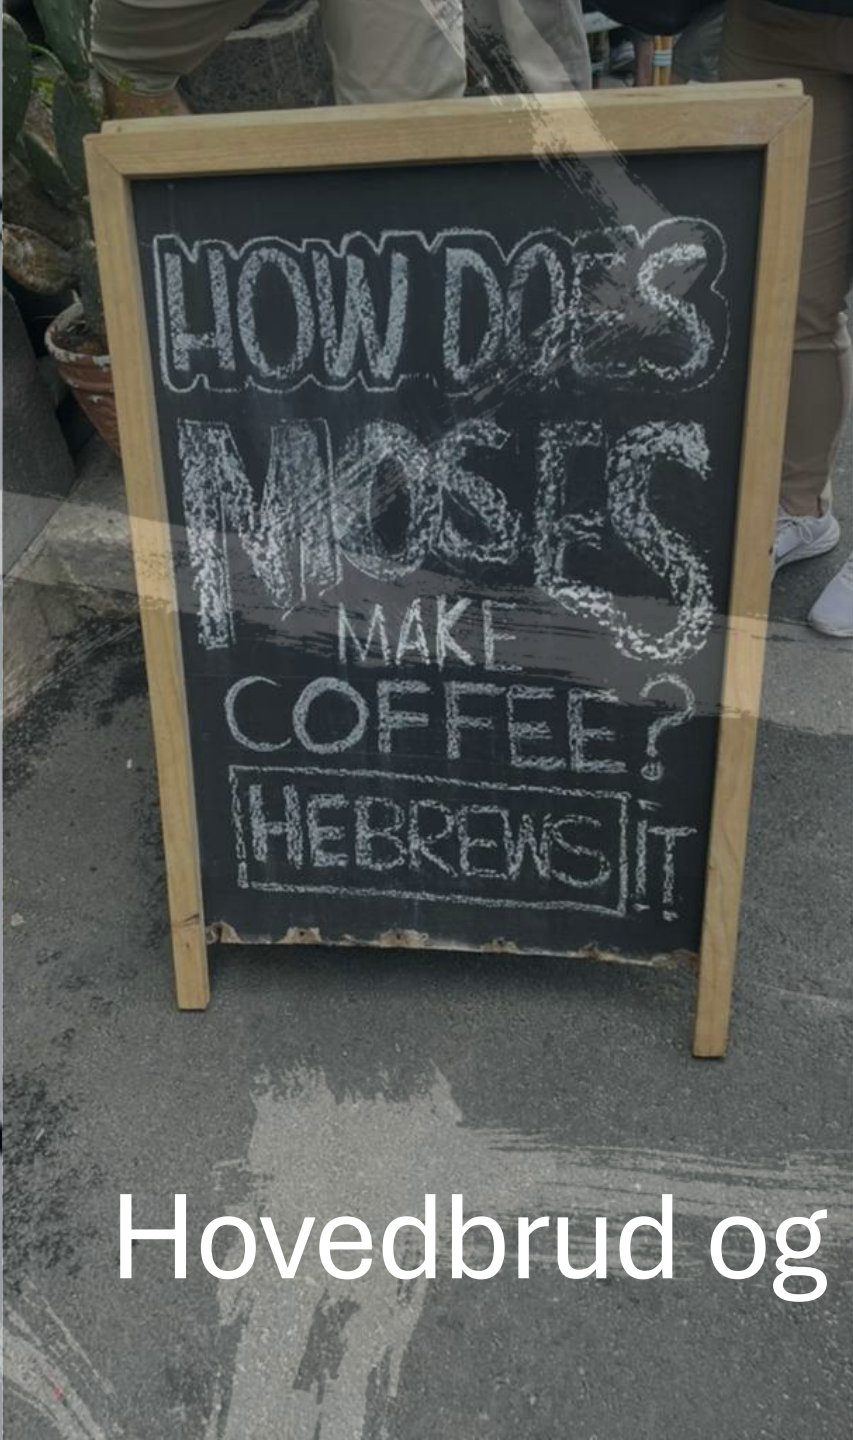 HOW DOES
MOSES
MAKE
COFFEE?
HEBREWS IT
Hovedbrud og